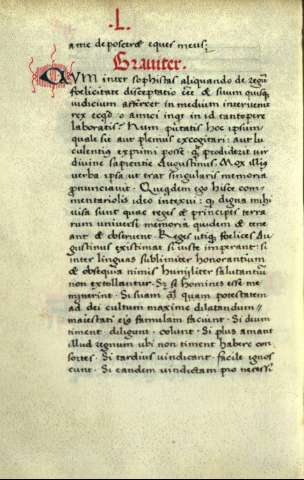 .L.
a me deposceres eques meus:
Graviter.
QVM inter sophistas aliquando de regũ
foelicitate disceptatio eẽt & suum quisq
iudicium afferret in medium intervenit
rex & qd o amici inqt in id tantopere
laboratis? Num putatis hoc ipsum
quale sit aut plenius excogitari: aut lu
culentius exprimi posse q prodiderit vir
divine sapientie Augustinus. Mox illiꝰ
verba ipsa ut erat singularis memoria
pnunciavit. Quidem ego hisce com
mentariolis ideo intexui: q digna mihi
visa sunt quae reges & principes terra
rum universi memoria quidem & tene
ant & observent. Reges utiq foelices Au
gustinus existimat si iuste imperant: si
inter linguas sublimiter honorantium
& obsequia nimis humiliter salutantiũ
non extollantur. Sz se homines esse me
minerint. Si suam potestatem
ad dei cultum maxime dilatandum
maiestati eiꝰ famulam faciunt. Si deum
timent. diligunt. colunt. Si plus amant
illud regnum ubi non timent habere con
sortes. Si tardius vindicant. facile ignos
cunt. Si eandem vindictam pro necessi